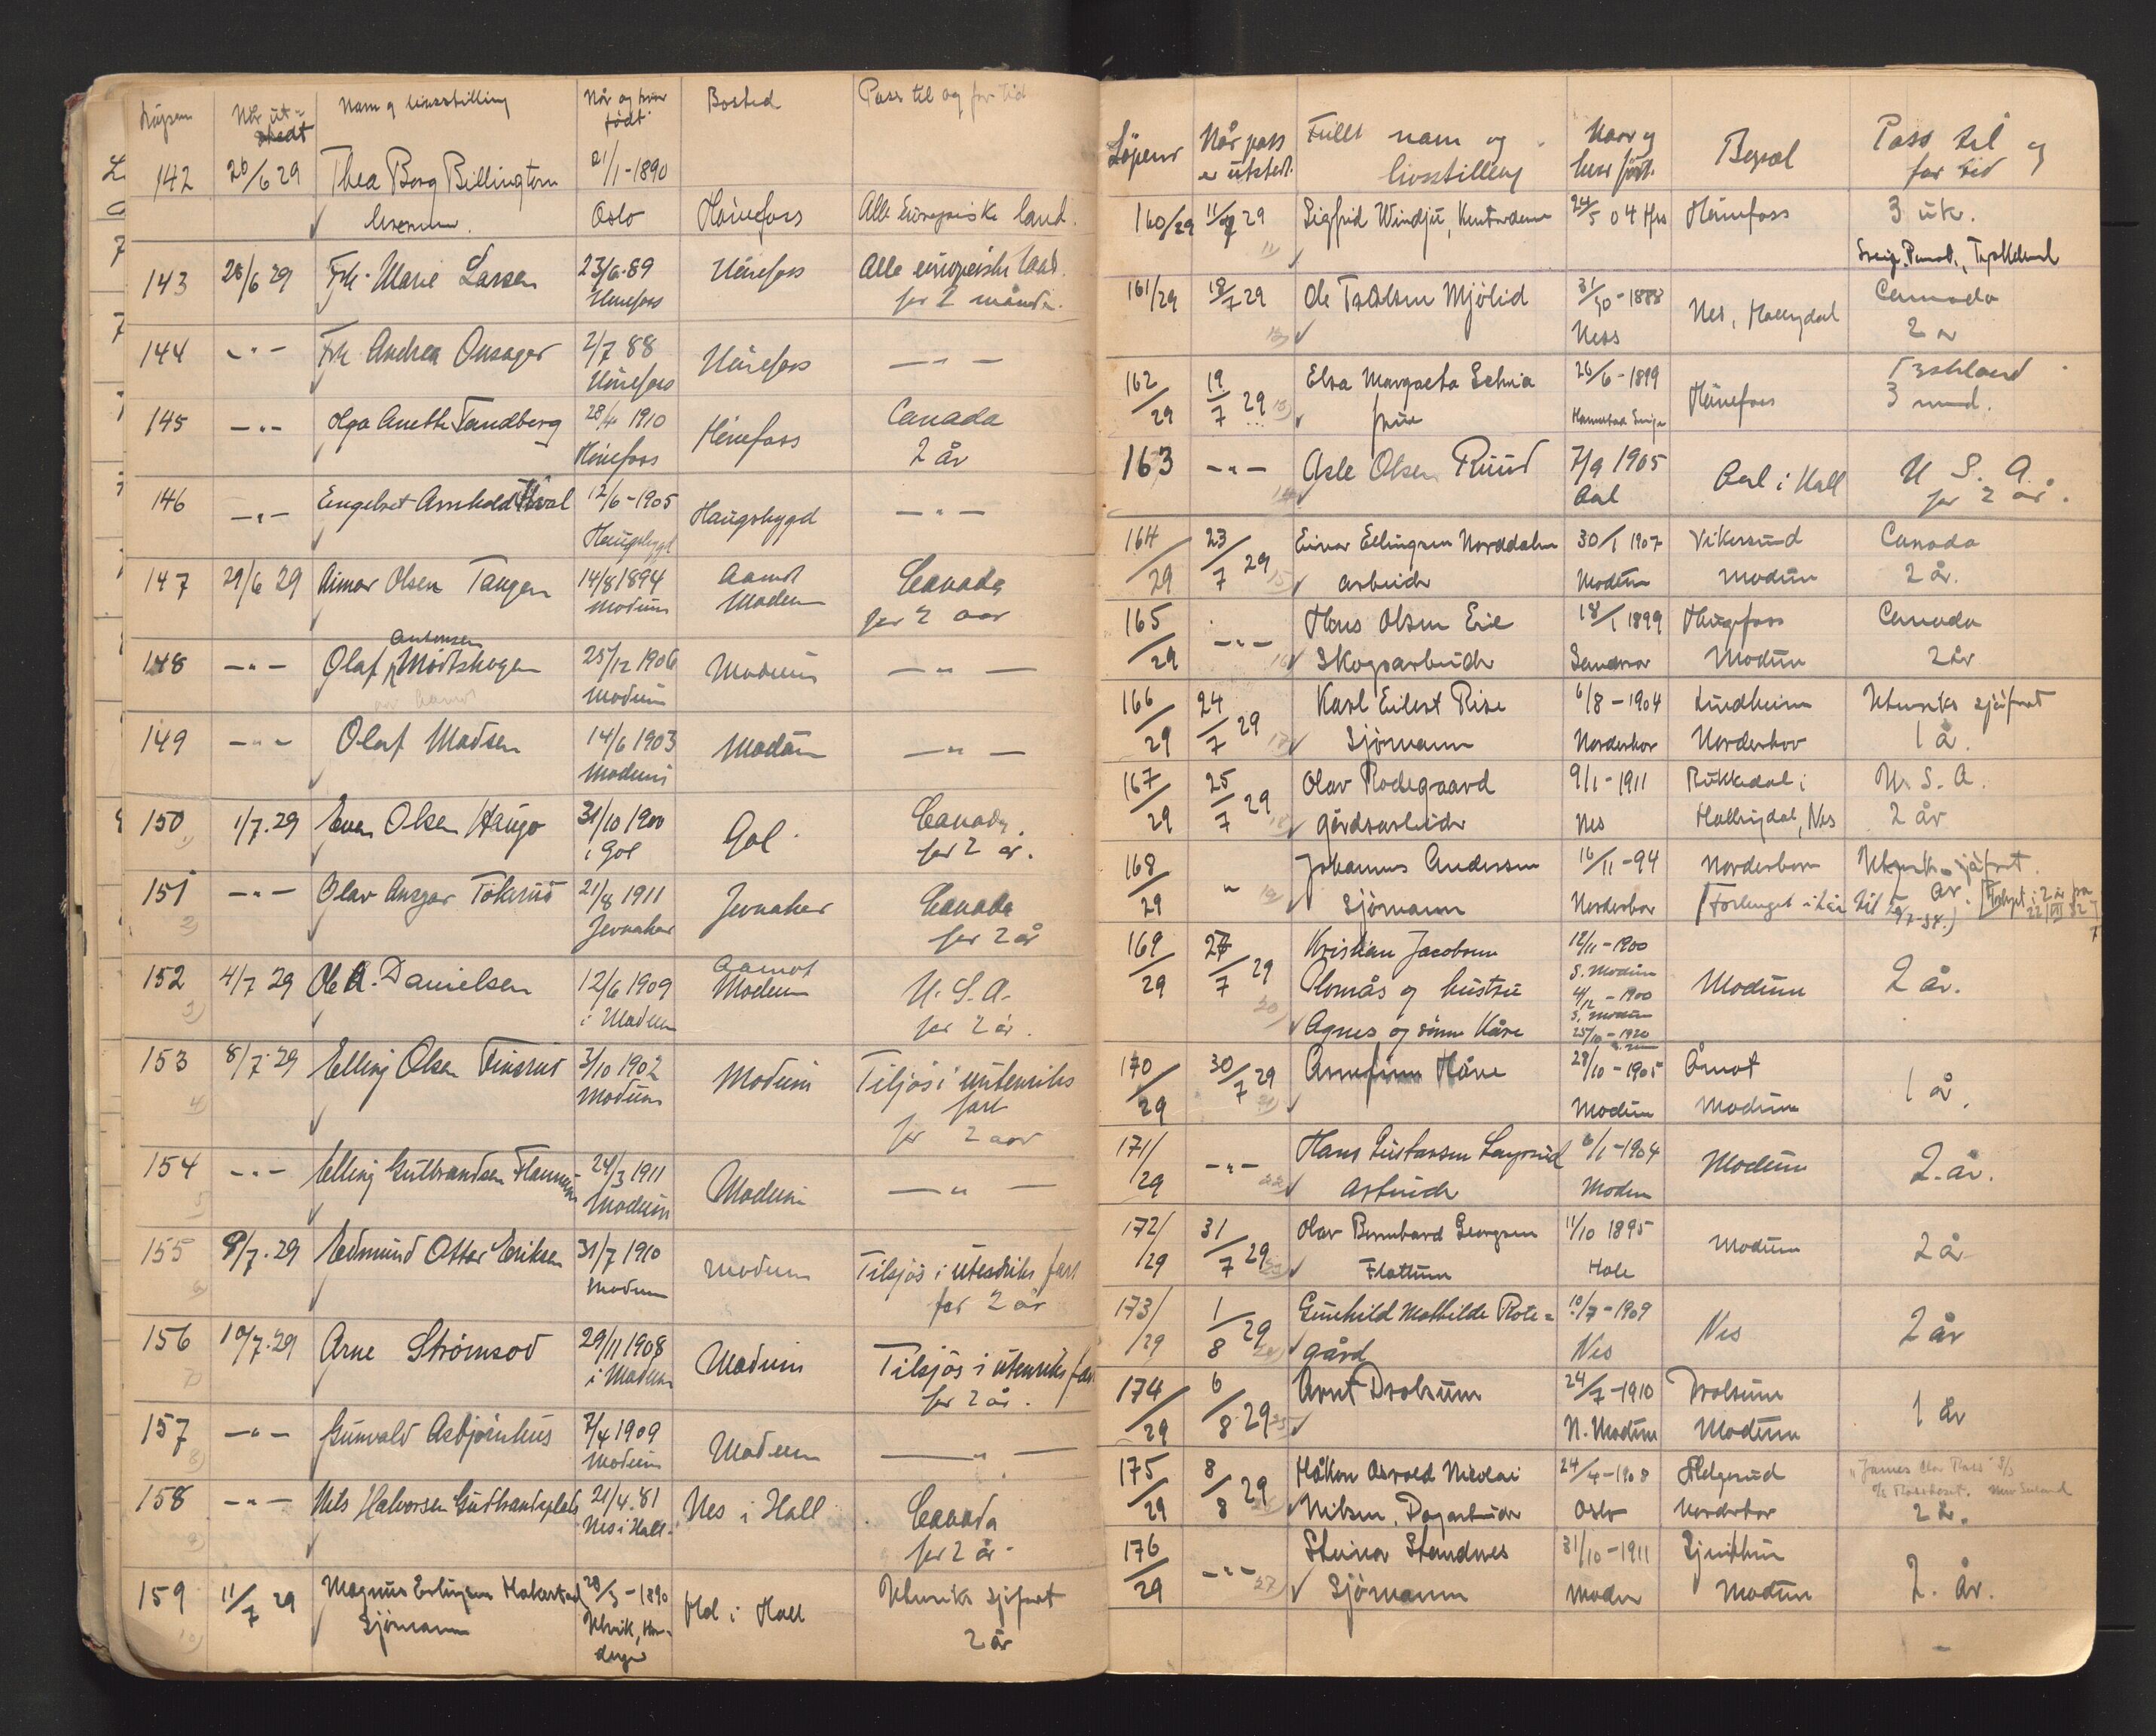 Når ut-
stedt
Navn og livsstilling
Når og hvor
født
Bosted
Pass til og for tid
142 26/6 29 Thea Borg Billington 21/1-1890
Oslo Hønefoss Alle Europeiske land.
143 28/6 29 Frk. Marie Larsen 23/6-89 Hønefoss Alle europeiske land
Hønefoss for 2 måneder.
144 -"- Frk Andrea Onsager 2/7 88 Hønefoss -"-
Hønefoss
145 -"- Olga Anette Tandberg 28/4 1910 Hønefoss Canada
Hønefoss 2 år
146 -"- Engebret Arnhold 12/6-1905 Haugsbygd -"-
Haugsbygd
147 29/6 29 Aimar Olsen Tangen 14/8 1894 Aamot Canada
Modum Modum for 2 aar
Antonsen
148 -"- Olaf Mørtskogen 25/12 1906 Modum -"-
Modum
149 -"- Olaf Madsen 14/6 1903 Modum -"-
Modum
150 1/7.29 Even Olsen Haugo 31/10 1900 Gol Canada
i Gol for 2 år.
151 -"- Olav Ansgar Tokerud 21/8 1911 Jevnaker Canada
Jevnaker for 2 år
152 4/7 29 Ole A. Danielsen 12/6 1909 Aamot U.S.A.
i Modum Modum for 2 år.
153 8/7.29 Elling Olsen Finsrud 3/10 1902 Modum Tilsjøs i utenriks
Modum fart
for 2 aar
154 -"- Elling Gulbrandsen 24/3 1911 Modum -"-
Modum
155 9/7.29 Edmund Otter Eriksen 31/7 1910 Modum Tilsjøs i utenriks fart
Modum for 2 år
156 10/7.29 Arne Strømsod 29/11 1908 Modum Tilsjøs i utenriks fart
i Modum for 2 år.
157 -"- Gunvald Asbjørnhus 7/4 1909 Modum -"-
Modum
158 -"- Nils Halvorsen Gudbrandsplads 21/4.81 Nes i Hall Canada
Nes i Hall. for 2 år
159 11/7 29 Magnus Erlingsen 28/3-1890 Hol i Hall Utenriks sjøfart
Sjømann Ulvik, Har- 2 år
danger
Løpenr Når pass Fullt navn og Naar og Pass til og
er utstedt. livsstilling hvor født. for tid
160/29 11/7 29 Sigfrid Windju, 24/5 04 Hfss Hønefoss 3 uk.
161/29 18/7 29 Ole T. Olsen Mjølid 31/10-1888 Nes, Hallingdal Canada
Ness 2 år
162/29 19/7 29 Elsa Margreta 26/6-1899 Hønefoss Tyskland
frue 3 mnd.
163 -"- Asle Olsen Ruud 7/9 1905 Aal i Hall U.S.A.
Aal for 2 år.
164/29 23/7 29 Einar Ellingsen Norddalen 30/1 1907 Vikersund Canada
arbeider Modum Modum 2 år.
165/29 -"- Hans Olsen Eie 18/1 1899 Haugfoss Canada
Skogsarbeider Modum 2 år
166/29 24/7 29 Karl Eilert Rise 6/8-1904 Lindheim Utenriks sjøfart
Sjømann Norderhov Norderhov 1 år.
167/29 25/7 29 Olav Rodegaard 9/1-1911 Rukkedal i U.S.A.
gårdsarbeider Nes Hallingdal, Nes 2 år
168/29 " Johannes Andersen 16/11-94 Norderhov Utenriks sjøfart.
Sjømann Norderhov (Forlenget i 2 år til
169/29 27/7 29 Kristian Jacobsen 12/11-1900
Plomås og hustru S. Modum Modum 2 år.
4/12-1900
S. Modum
Agnes og sønn Kåre 25/10-1920
170/29 30/7 29 Arnfinn Håve 28/10-1905 Åmot 1 år.
Modum Modum
171/29 -"- Hans Gustavsen 6/1-1904 Modum 2 år.
Arbeider Modum
172/29 31/7 29 Olav Bernhard Georgsen 11/10 1895 Modum 2 år
Flattum Hole
173/29 1/8 29 Gunhild Mathilde Rote- 10/7-1909 Nes 2 år
gård Nes
174/29 6/8 29 Arnt Drolsum 24/7-1910 Drolsum 1 år
N. Modum Modum
175/29 8/8 29 Håkon Osvald Nicolai 24/4-1908 Helgerud
Nilsen, Dagarbeider Oslo Norderhov 2 år.
176/29 -"- Steinar Strandnes 31/10-1911
Sjømann Modum Modum 2. år.